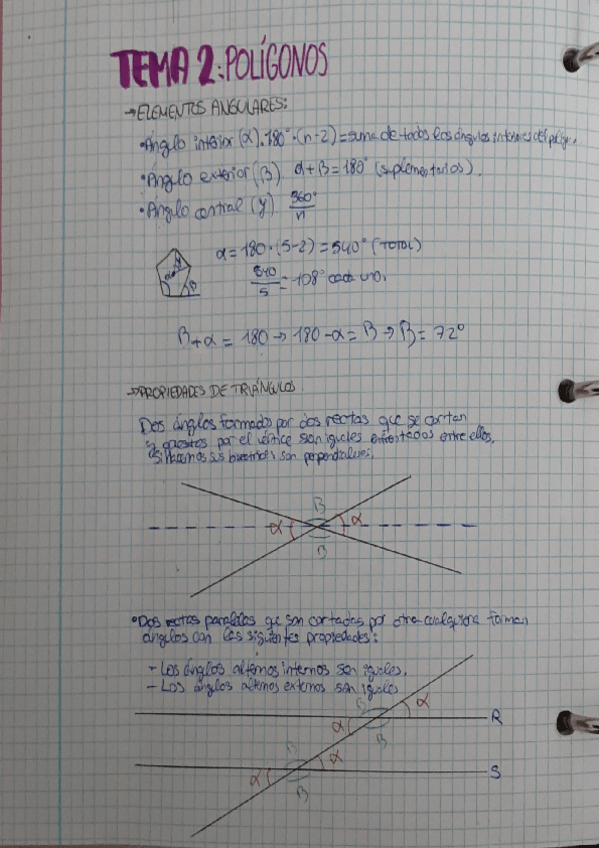 TEMA 2: POLÍGONOS
→ ELEMENTOS ANGULARES:
• Ángulo interior (α). 180° · (n-2) = suma de todos los ángulos internos del políg.
• Ángulo exterior (β) α + β = 180° (suplementarios).
• Ángulo central (γ) 360°
n
α = 180 · (5-2) = 540° (TOTAL)
540
5
= 108° cada uno.
β + α = 180 → 180 - α = β → β = 72°
→ PROPIEDADES DE TRIÁNGULOS
Dos ángulos formado por dos rectas que se cortan
opuestos por el vértice son iguales enfrentados entre ellos.
sus bisectrices son perpendiculares.
β
α α
β
• Dos rectas paralelas que son cortadas por otra cualquiera forman
ángulos con las siguientes propiedades:
- Los ángulos alternos internos son iguales.
- Los ángulos alternos externos son iguales
β α
R
α β
β α
S
α β